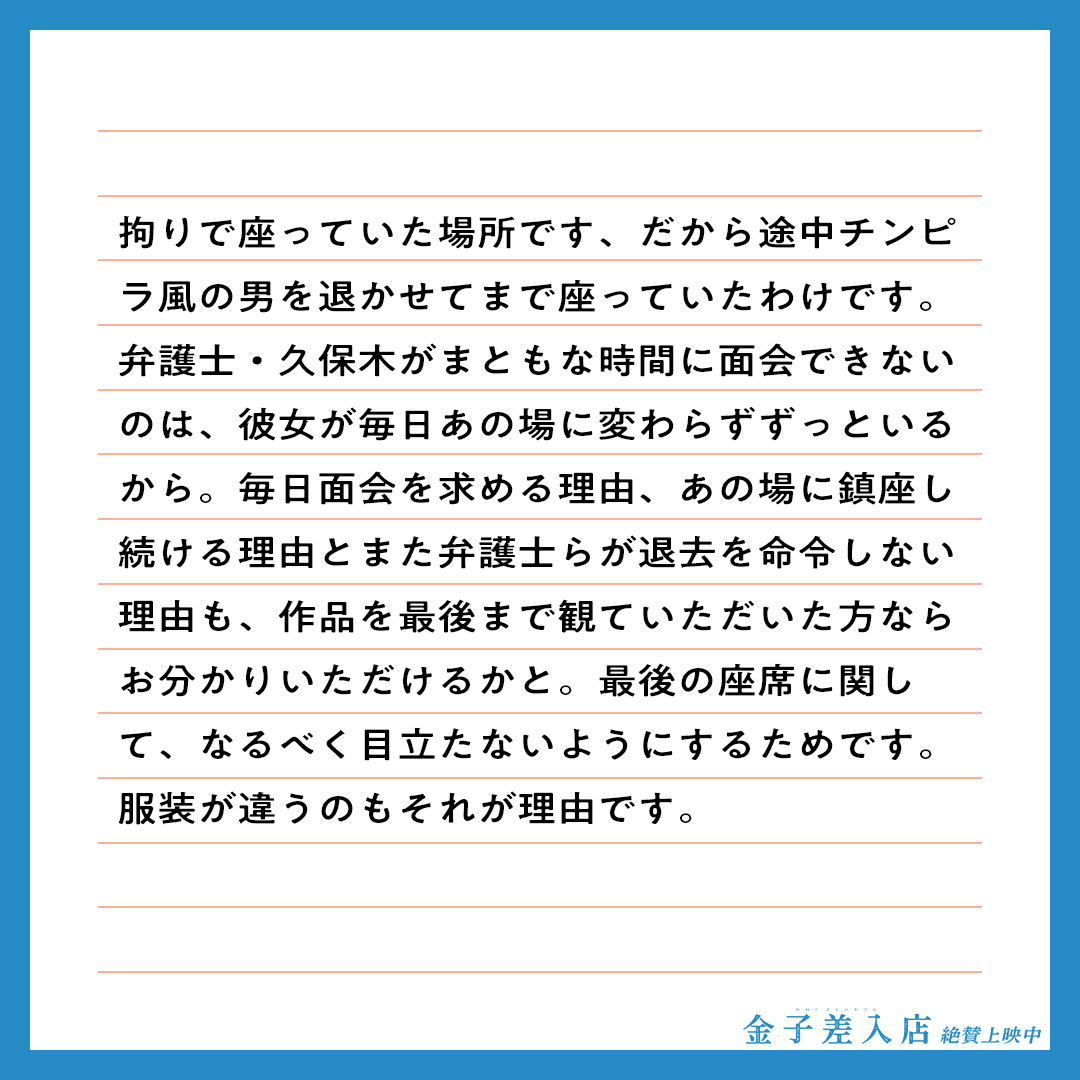 拘りで座っていた場所です、だから途中チンピ
ラ風の男を退かせてまで座っていたわけです。
弁護士・久保木がまともな時間に面会できない
のは、彼女が毎日あの場に変わらずずっといる
から。毎日面会を求める理由、あの場に鎮座し
続ける理由とまた弁護士らが退去を命令しない
理由も、作品を最後まで観ていただいた方なら
お分かりいただけるかと。最後の座席に関し
て、なるべく目立たないようにするためです。
服装が違うのもそれが理由です。
金子差入店 絶賛上映中